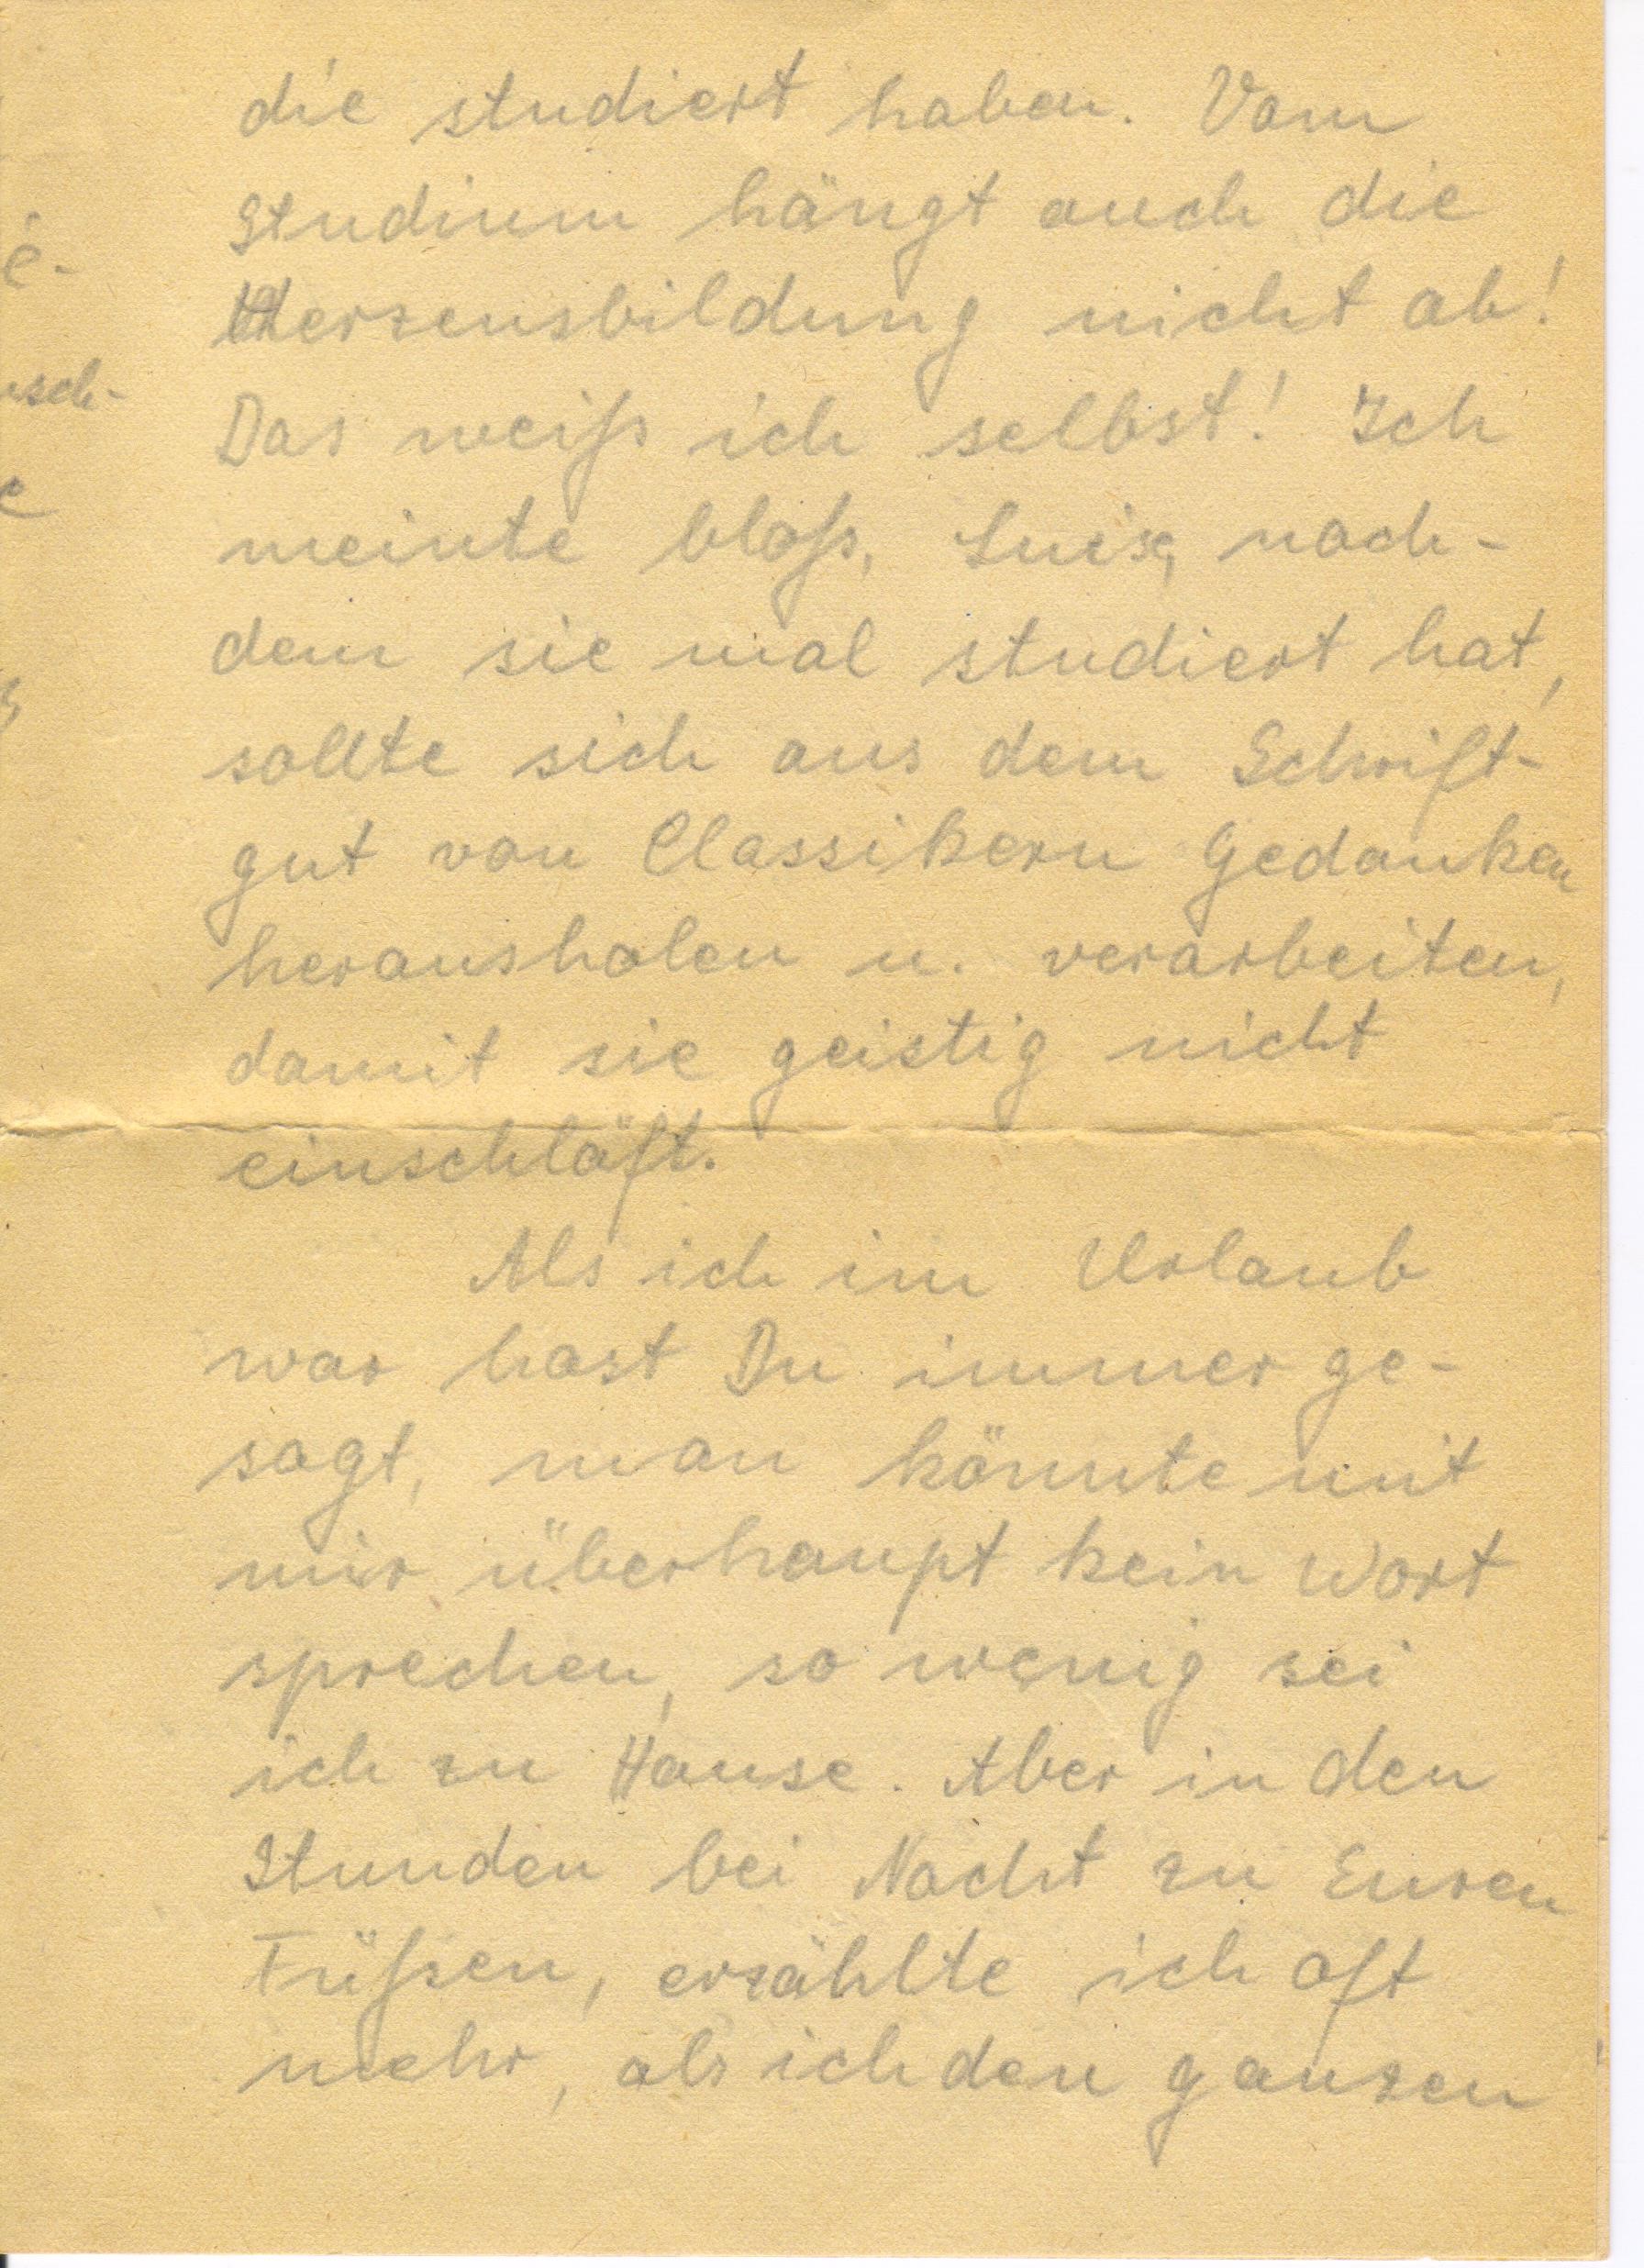 die studiert haben. Vom
Studium hängt auch die
Herzensbildung nicht ab!
Das weiß ich selbst! Ich
meinte bloß, Luise, nach-
dem sie mal studiert hat,
sollte sich aus dem Schrift-
gut von Classikern Gedanken
herausholen u. verarbeiten,
damit sie geistig nicht
einschläft.
Als ich im Urlaub
war hast Du immer ge-
sagt, man könnte mit
mir überhaupt kein Wort
sprechen, so wenig sei
ich zu Hause. Aber in den
Stunden bei Nacht zu Euren
Füßen, erzählte ich oft
mehr, als ich den ganzen